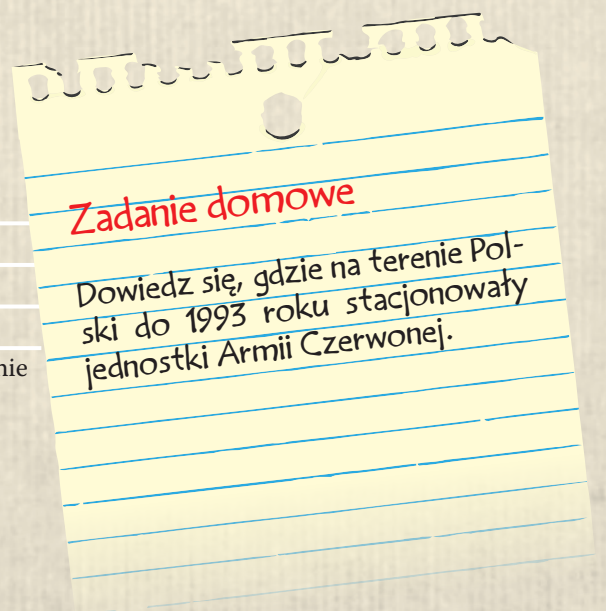 Zadanie domowe
Dowiedz się, gdzie na terenie Pol-
ski do 1993 roku stacjonowały
jednostki Armii Czerwonej.
nie